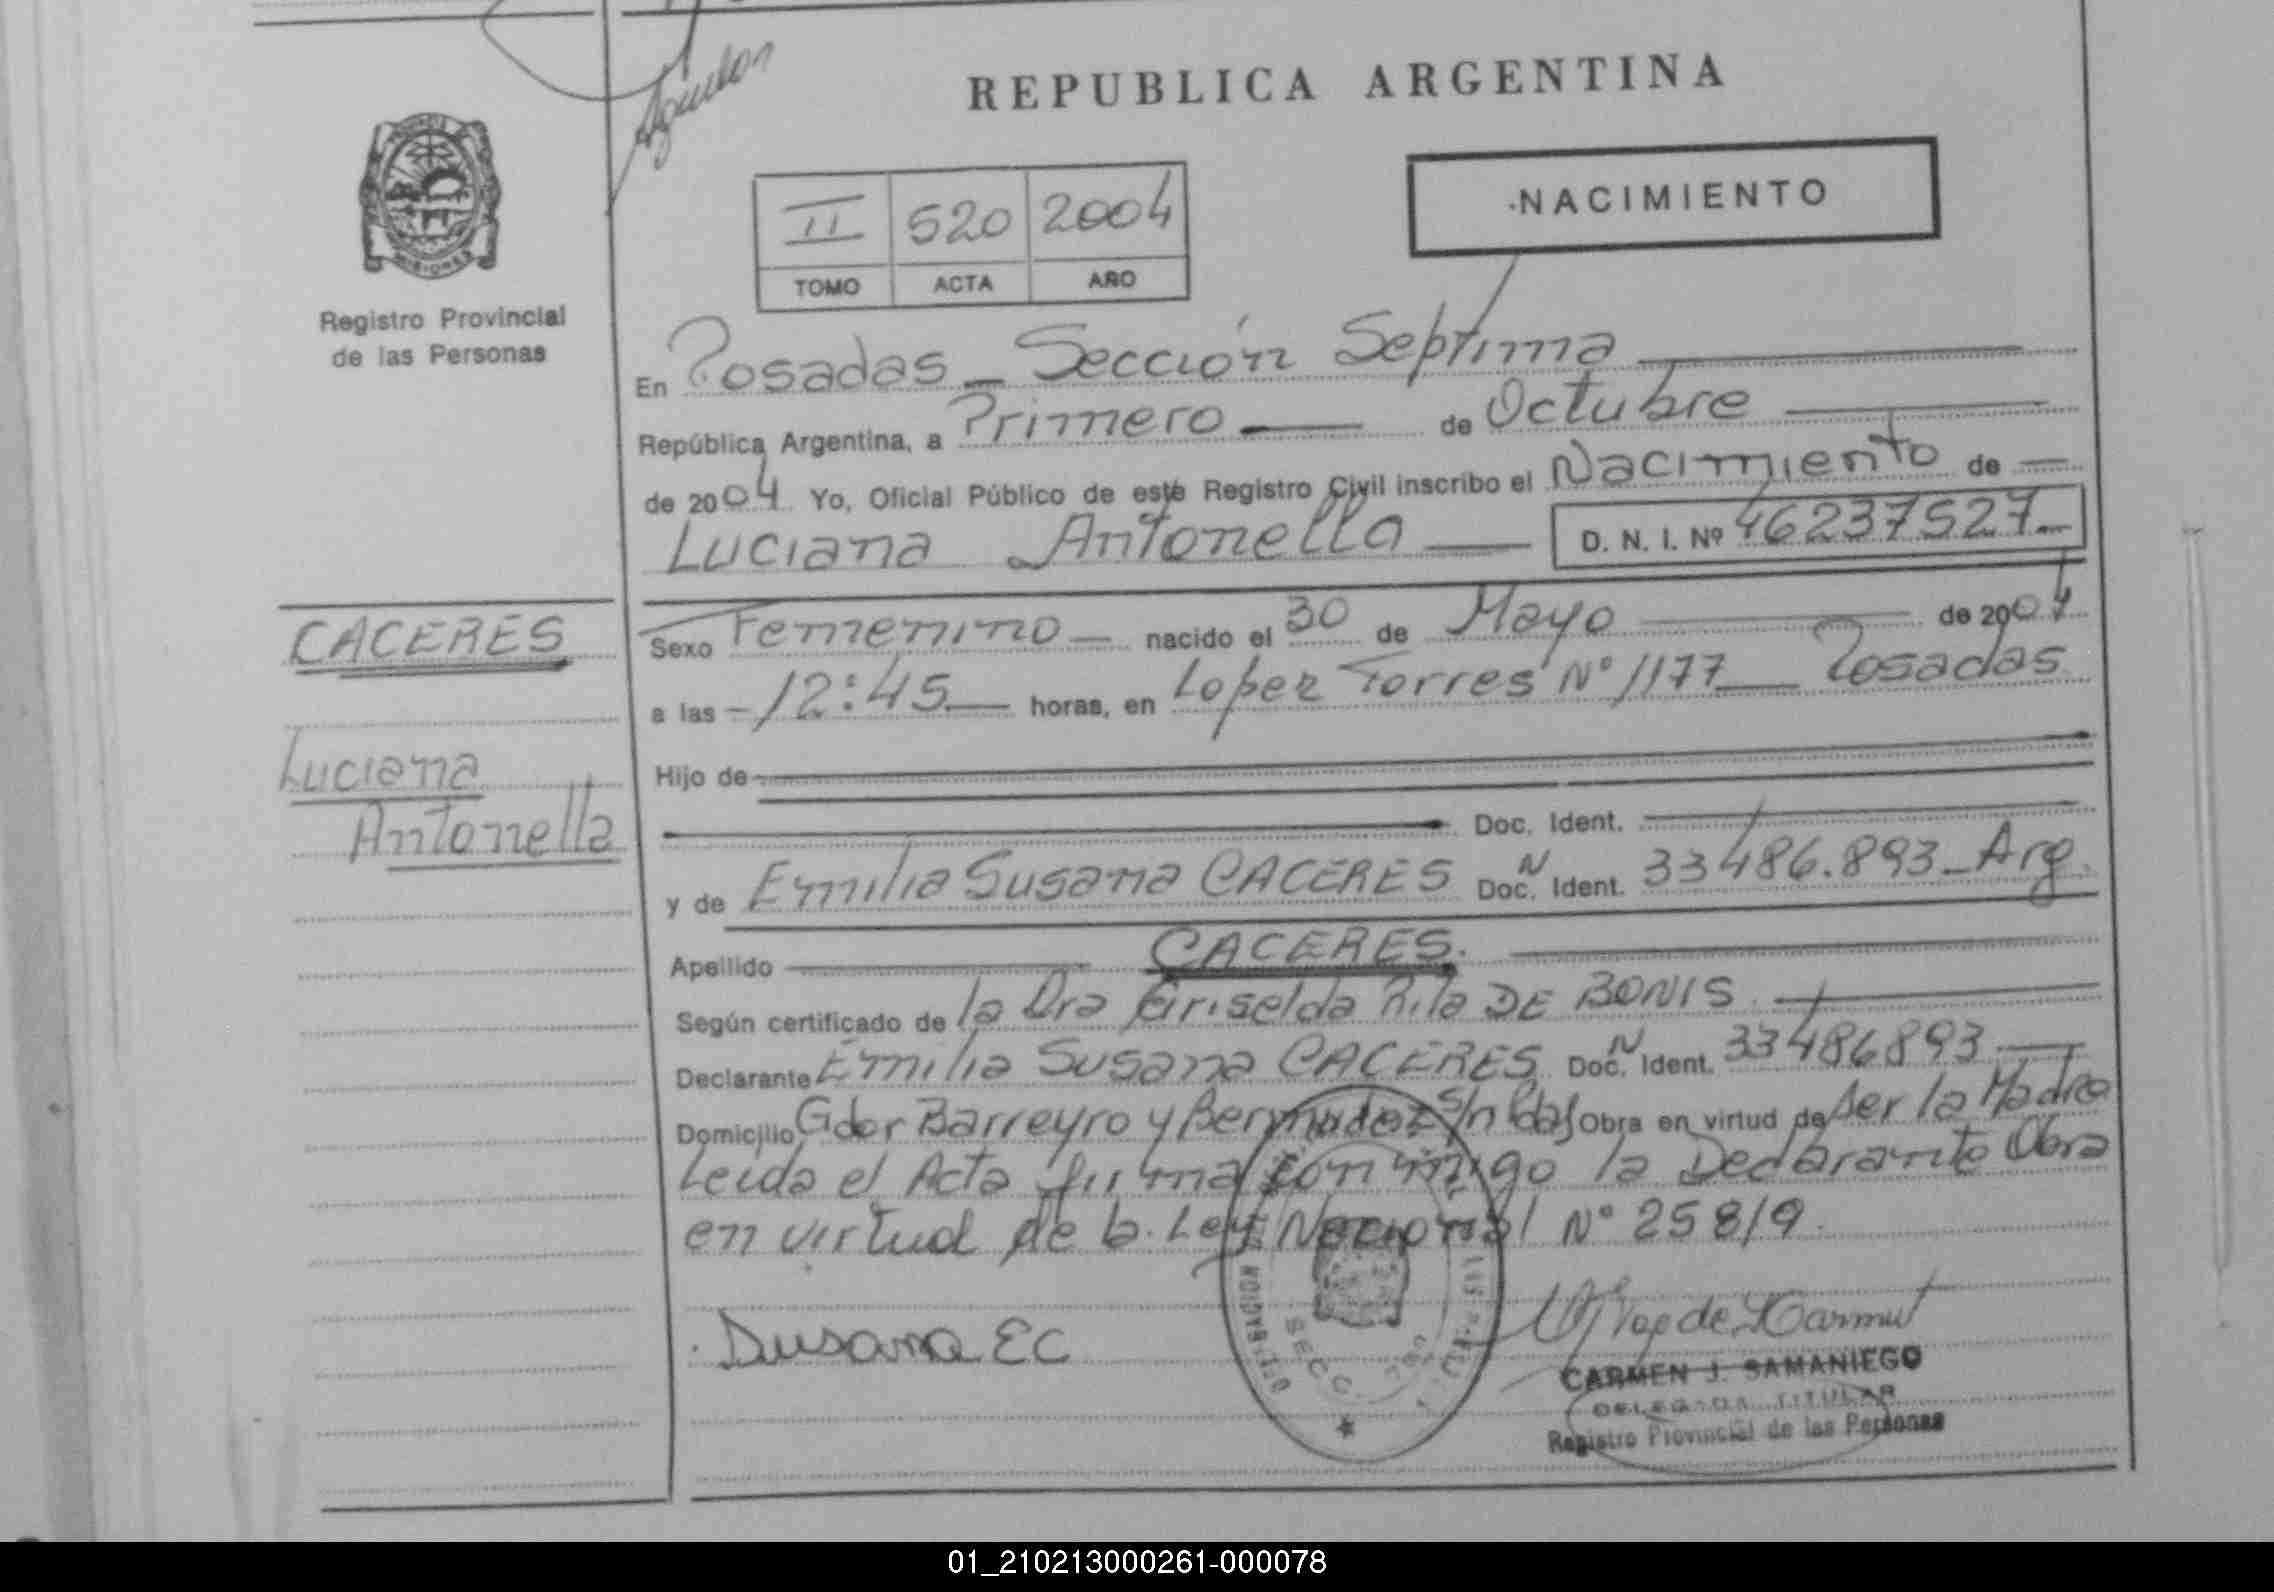 REPUBLICA ARGENTINA
NACIMIENTO
II 520 2004
TOMO ACTA AÑO
PROVINCIA DE MISIONES
Registro Provincial
de las Personas
En Posadas _ Sección Septima
República Argentina, a Primero de Octubre
de 2004 Yo, Oficial Público de este Registro Civil inscribo el Nacimiento de
Luciana Antonella D. N. I. Nº 46237527
CACERES
Luciana
Antonella
Sexo Femenino nacido el 30 de Mayo de 2004
a las 12:45 horas, en Lopez Torres Nº 1177 Posadas
Hijo de
Doc. Ident.
y de Emilia Susana CACERES Doc. N Ident. 33486.893_Arg.
Apellido CACERES.
Según certificado de la Dra Griselda Rita DE BONIS
Declarante Emilia Susana CACERES Doc. N Ident. 33486893
Domicilio Gdor Barreyro y Bermudez s/n Pdas Obra en virtud de ser la Madre
Leida el Acta firma conmigo la Declarante Obra
en virtud de la Ley Nacional Nº 25819.
Susana EC
SECC.
CARMEN J. SAMANIEGO
DELEGADA TITULAR
Registro Provincial de las Personas
01_210213000261-000078